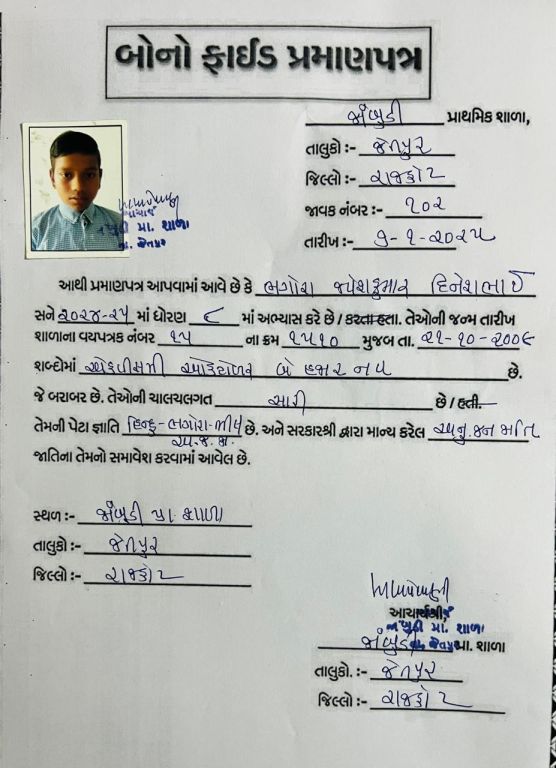 બોનો ફાઈડ પ્રમાણપત્ર
જાંબુડી પ્રાથમિક શાળા,
તાલુકો :- જેતપુર
જિલ્લો :- રાજકોટ
જાવક નંબર :- ૧૦૨
તારીખ :- ૭-૧-૨૦૨૫
આથી પ્રમાણપત્ર આપવામાં આવે છે કે ભગોરા જયેશકુમાર દિનેશભાઈ
સને ૨૦૨૪-૨૫ માં ધોરણ ૮ માં અભ્યાસ કરે છે / કરતા હતા. તેઓની જન્મ તારીખ
શાળાના વયપત્રક નંબર ૧૫ ના ક્રમ ૧૫૧૦ મુજબ તા. ૨૧-૧૦-૨૦૦૯
શબ્દોમાં એકવીસમી ઓક્ટોબર બે હજાર નવ છે.
જે બરાબર છે. તેઓની ચાલચલગત સારી છે / હતી.
તેમની પેટા જ્ઞાતિ હિન્દુ-ભગોરા-ભીલ છે. અને સરકારશ્રી દ્વારા માન્ય કરેલ અનુ.જન જાતિ
અ.જ.જા.
જાતિના તેમનો સમાવેશ કરવામાં આવેલ છે.
સ્થળ :- જાંબુડી પ્રા. શાળા
તાલુકો :- જેતપુર
જિલ્લો :- રાજકોટ
આચાર્યશ્રી,
જાંબુડી પ્રા. શાળા
તાલુકો. :- જેતપુર
જિલ્લો :- રાજકોટ